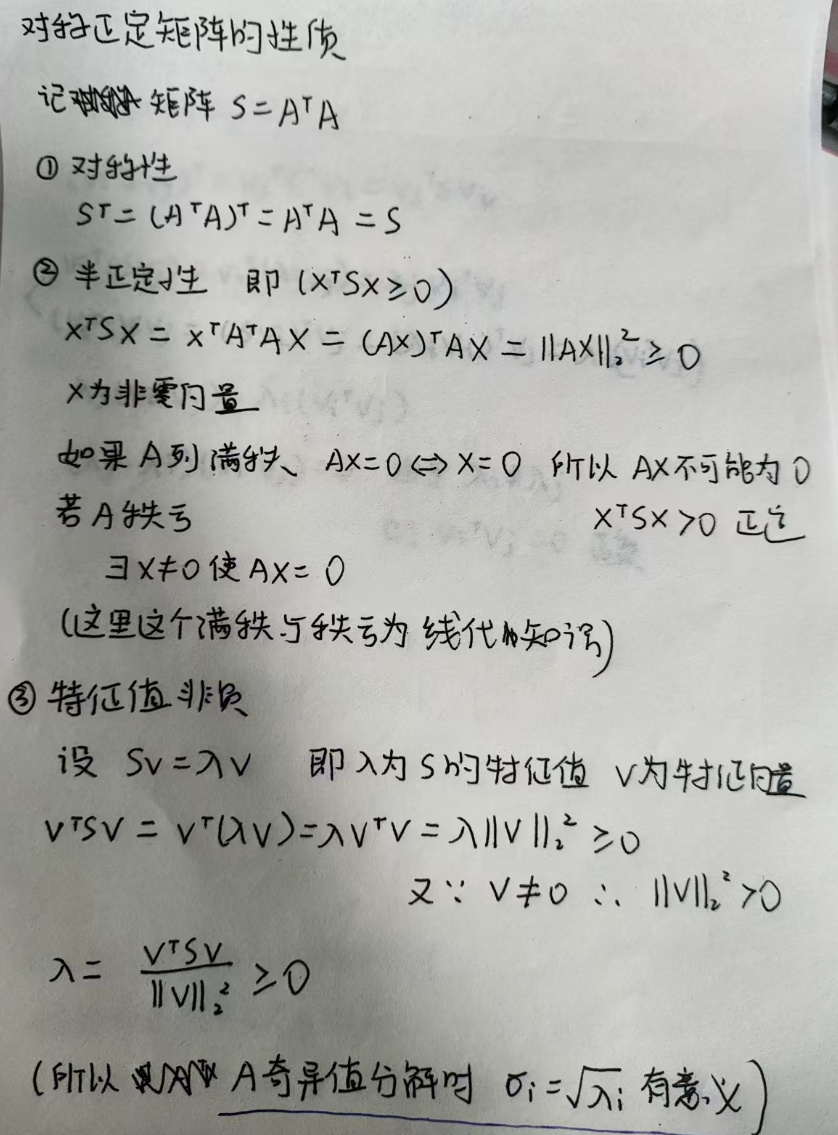 对称正定矩阵的性质
记 矩阵 S = AᵀA
① 对称性
Sᵀ = (AᵀA)ᵀ = AᵀA = S
② 半正定性 即 (XᵀSX ≥ 0)
XᵀSX = XᵀAᵀAX = (AX)ᵀAX = ||AX||₂² ≥ 0
X为非零向量
如果 A列满秩、 AX=0 ⇔ X=0 所以 AX不可能为 0
若A秩亏 XᵀSX > 0 正定
∃X≠0 使 AX = 0
(这里这个满秩与秩亏为 线代的知识)
③ 特征值非负
设 Sv = λv 即 λ为 S 的特征值 V为特征向量
VᵀSV = Vᵀ(λV) = λVᵀV = λ||V||₂² ≥ 0
又∵ V ≠ 0 ∴ ||V||₂² > 0
λ = VᵀSV / ||V||₂² ≥ 0
(所以 A奇异值分解时 σᵢ = √λᵢ 有意义)